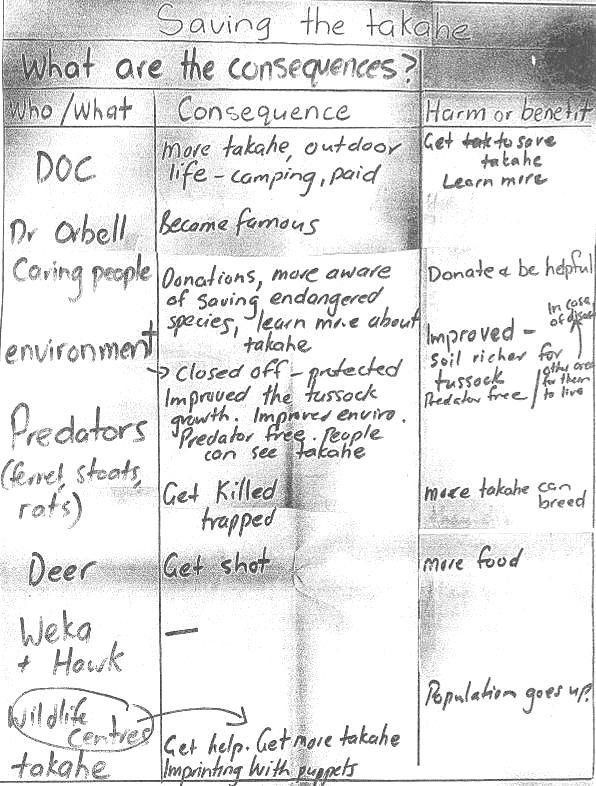 Saving the takahe
What are the consequences?
Who/What
Consequence
Harm or benefit
DOC
More takahe, outdoor
life - camping, paid
Get tak to save
takahe
Learn more
Dr Orbell
Became famous
Caring people
Donations, more aware
of saving endangered
species, learn more about
takahe
Donate & be helpful
environment
→ Closed off - protected
Improved the tussock
growth. Improved enviro.
Predator free. People
can see takahe
Improved -
soil richer for
tussock
Predator free
In case
of
other area
for them
to live
Predators
(ferret, stoats,
rats)
Get Killed
trapped
more takahe can
breed
Deer
Get shot
more food
Weka
+ Hawk
—
Wildlife
Centres
takahe
Get help. Get more takahe
Imprinting with puppets
Population goes up.